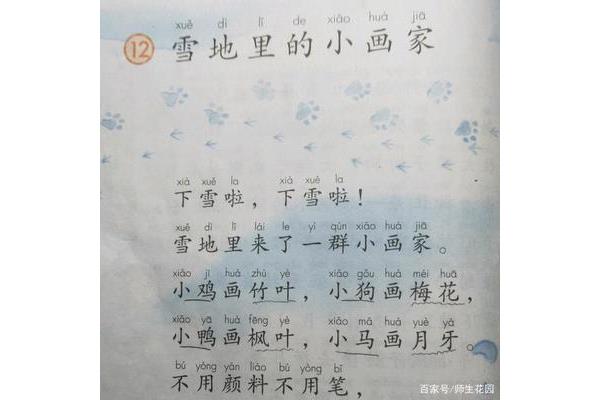 xuě dì lǐ de xiǎo huà jiā
12 雪地里的小画家
xià xuě la xià xuě la
下雪啦，下雪啦！
xuě dì lǐ lái le yì qún xiǎo huà jiā
雪地里来了一群小画家。
xiǎo jī huà zhú yè xiǎo gǒu huà méi huā
小鸡画竹叶，小狗画梅花，
xiǎo yā huà fēng yè xiǎo mǎ huà yuè yá
小鸭画枫叶，小马画月牙。
bú yòng yán liào bú yòng bǐ
不用颜料不用笔，
百家号/师生花园